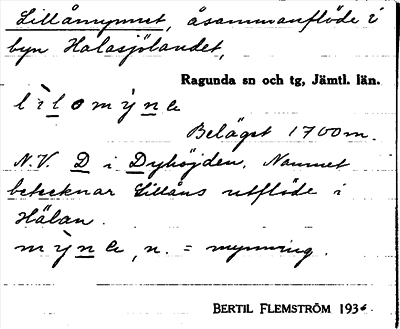 Lillåmynnet, åsammanflöde i
byn Halasjölandet,
Ragunda sn och tg, Jämtl. län.
lìlomỳne
Beläget 1700 m.
N.V. D i Dyhöjden. Namnet
betecknar Lillåns utflöde i
Hälan.
mỳne, n. = mynning.
BERTIL FLEMSTRÖM 1936.